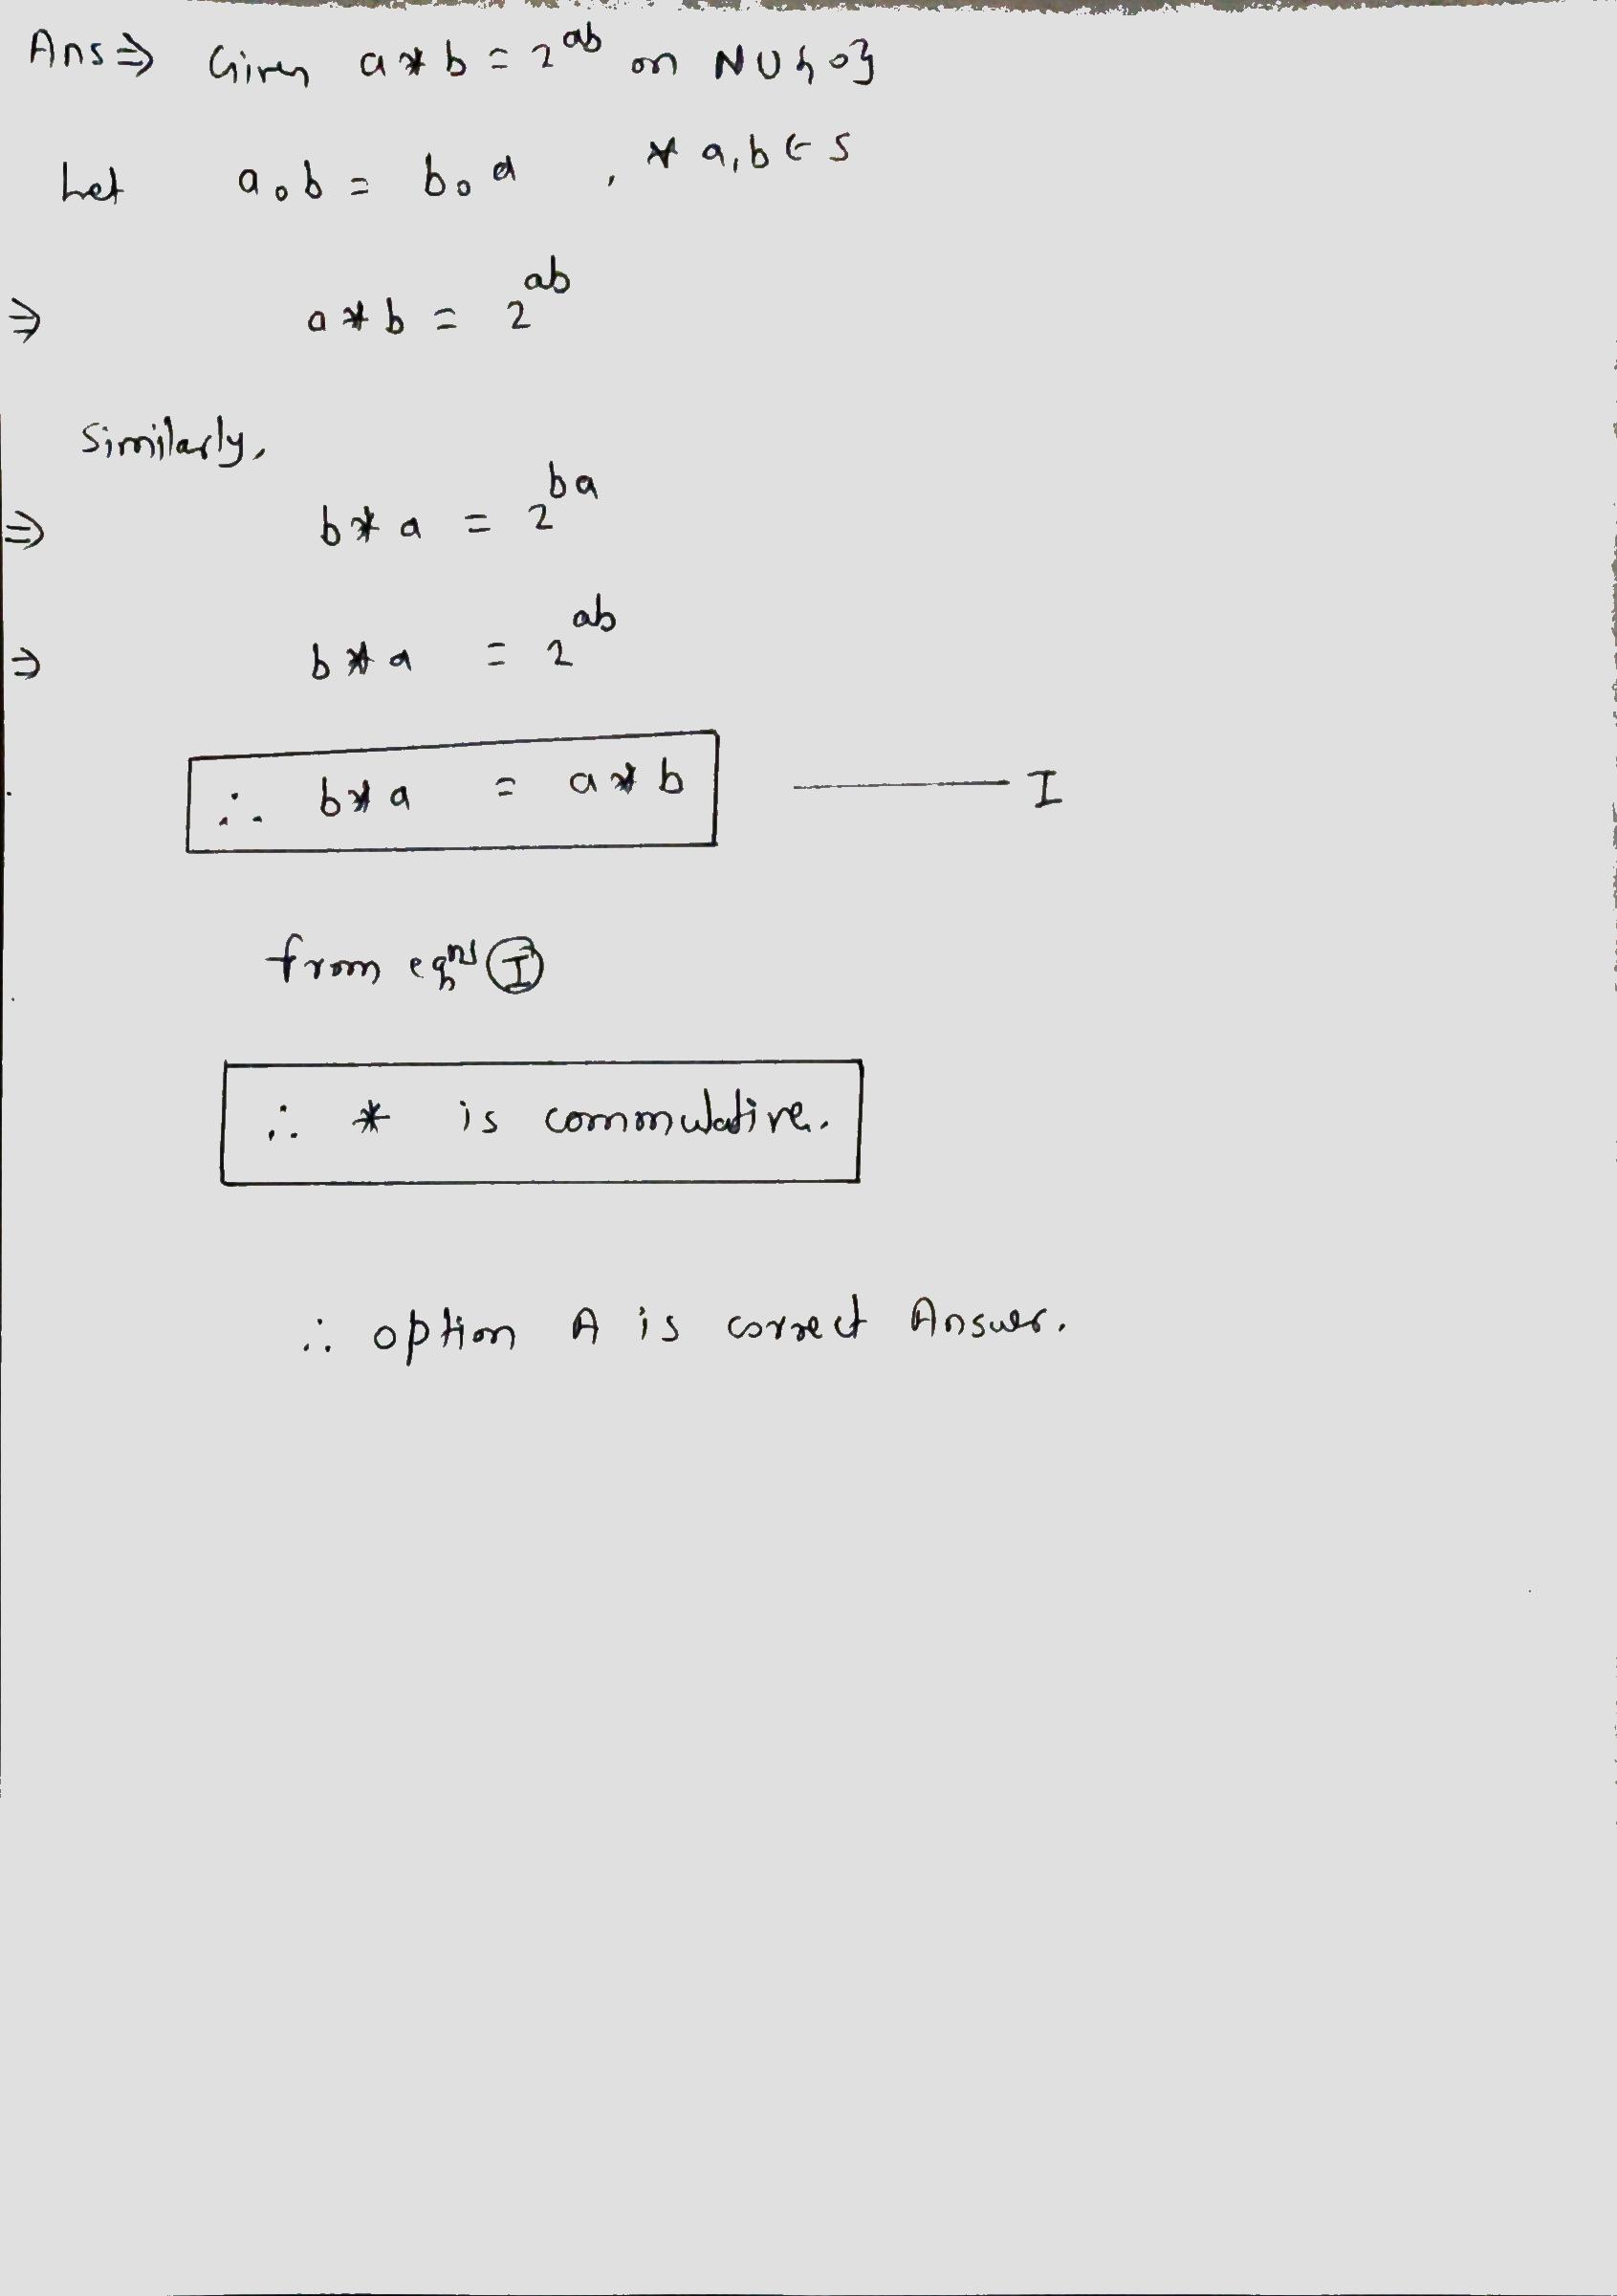 Ans ⇒ Given a * b = 2^ab on N U {0}
Let a o b = b o a , ∀ a, b ∈ S
⇒ a * b = 2^ab
Similarly,
⇒ b * a = 2^ba
⇒ b * a = 2^ab
∴ b * a = a * b —— I
from eqns I
∴ * is commulative.
∴ option A is correct Answer.